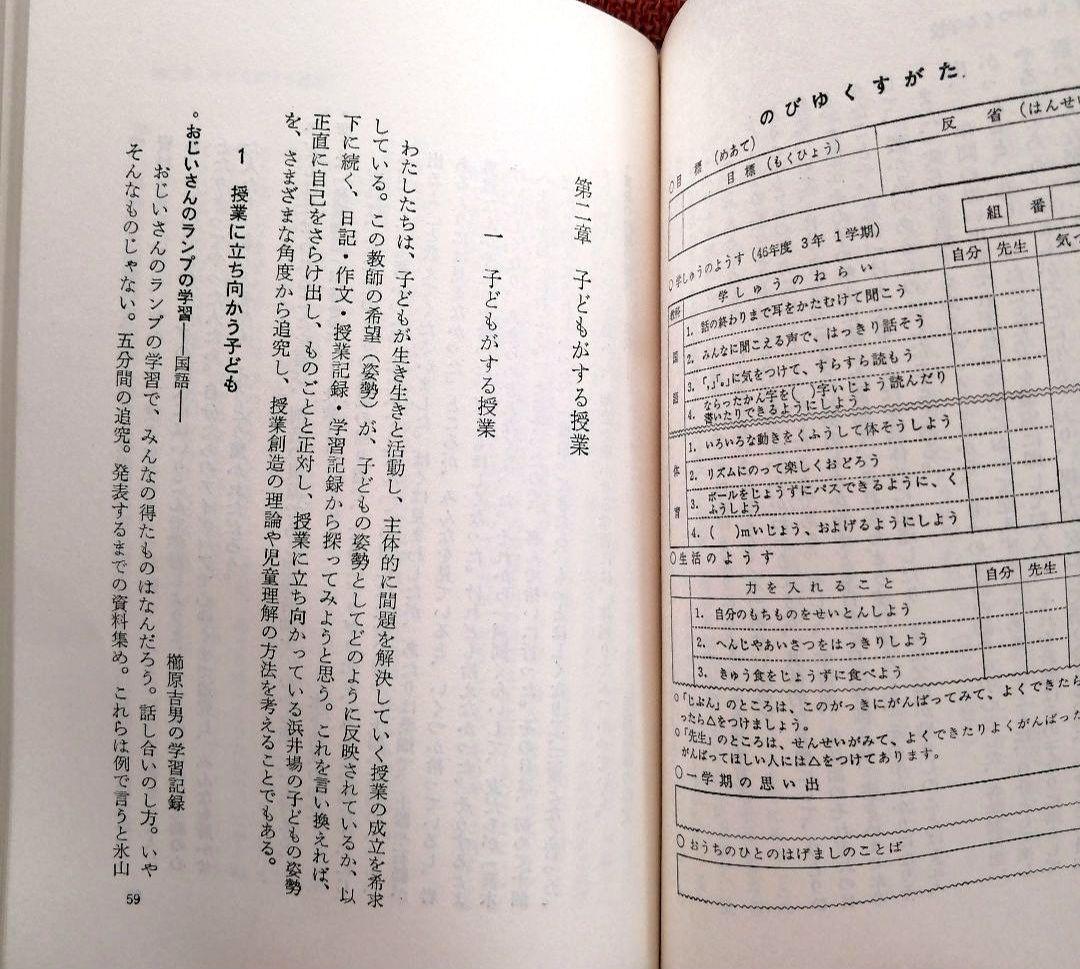 のびゆくすがた
○目標（めあて）
目標（もくひょう）
反省（はんせい
組 番
○学しゅうのようす（46年度3年1学期）
教科 学しゅうのねらい 自分 先生 気づ
国語
1. 話の終わりまで耳をかたむけて聞こう
2. みんなに聞こえる声で、はっきり話そう
3. 「，」「。」に気をつけて、すらすら読もう
4. ならったかん字を（ ）字いじょう読んだり
書いたりできるようにしよう
体育
1. いろいろな動きをくふうして体そうしよう
2. リズムにのって楽しくおどろう
3. ボールをじょうずにパスできるように、く
ふうしよう
4. （ ）mいじょう、およげるようにしよう
○生活のようす
力を入れること 自分 先生
1. 自分のもちものをせいとんしよう
2. へんじやあいさつをはっきりしよう
3. きゅう食をじょうずに食べよう
○「じぶん」のところは、このがっきにがんばってみて、よくできたら
ったら△をつけましょう。
○「先生」のところは、せんせいがみて、よくできたりよくがんばった
がんばってほしい人には△をつけてあります。
○一学期の思い出
○おうちのひとのはげましのことば
第二章 子どもがする授業
一 子どもがする授業
わたしたちは、子どもが生き生きと活動し、主体的に問題を解決していく授業の成立を希求
している。この教師の希望（姿勢）が、子どもの姿勢としてどのように反映されているか、以
下に続く、日記・作文・授業記録・学習記録から探ってみようと思う。これを言い換えれば、
正直に自己をさらけ出し、ものごとと正対し、授業に立ち向かっている浜井場の子どもの姿勢
を、さまざまな角度から追究し、授業創造の理論や児童理解の方法を考えることでもある。
1 授業に立ち向かう子ども
。おじいさんのランプの学習――国語――
櫛原吉男の学習記録
おじいさんのランプの学習で、みんなの得たものはなんだろう。話し合いのし方。いや
そんなものじゃない。五分間の追究。発表するまでの資料集め。これらは例で言うと氷山
59